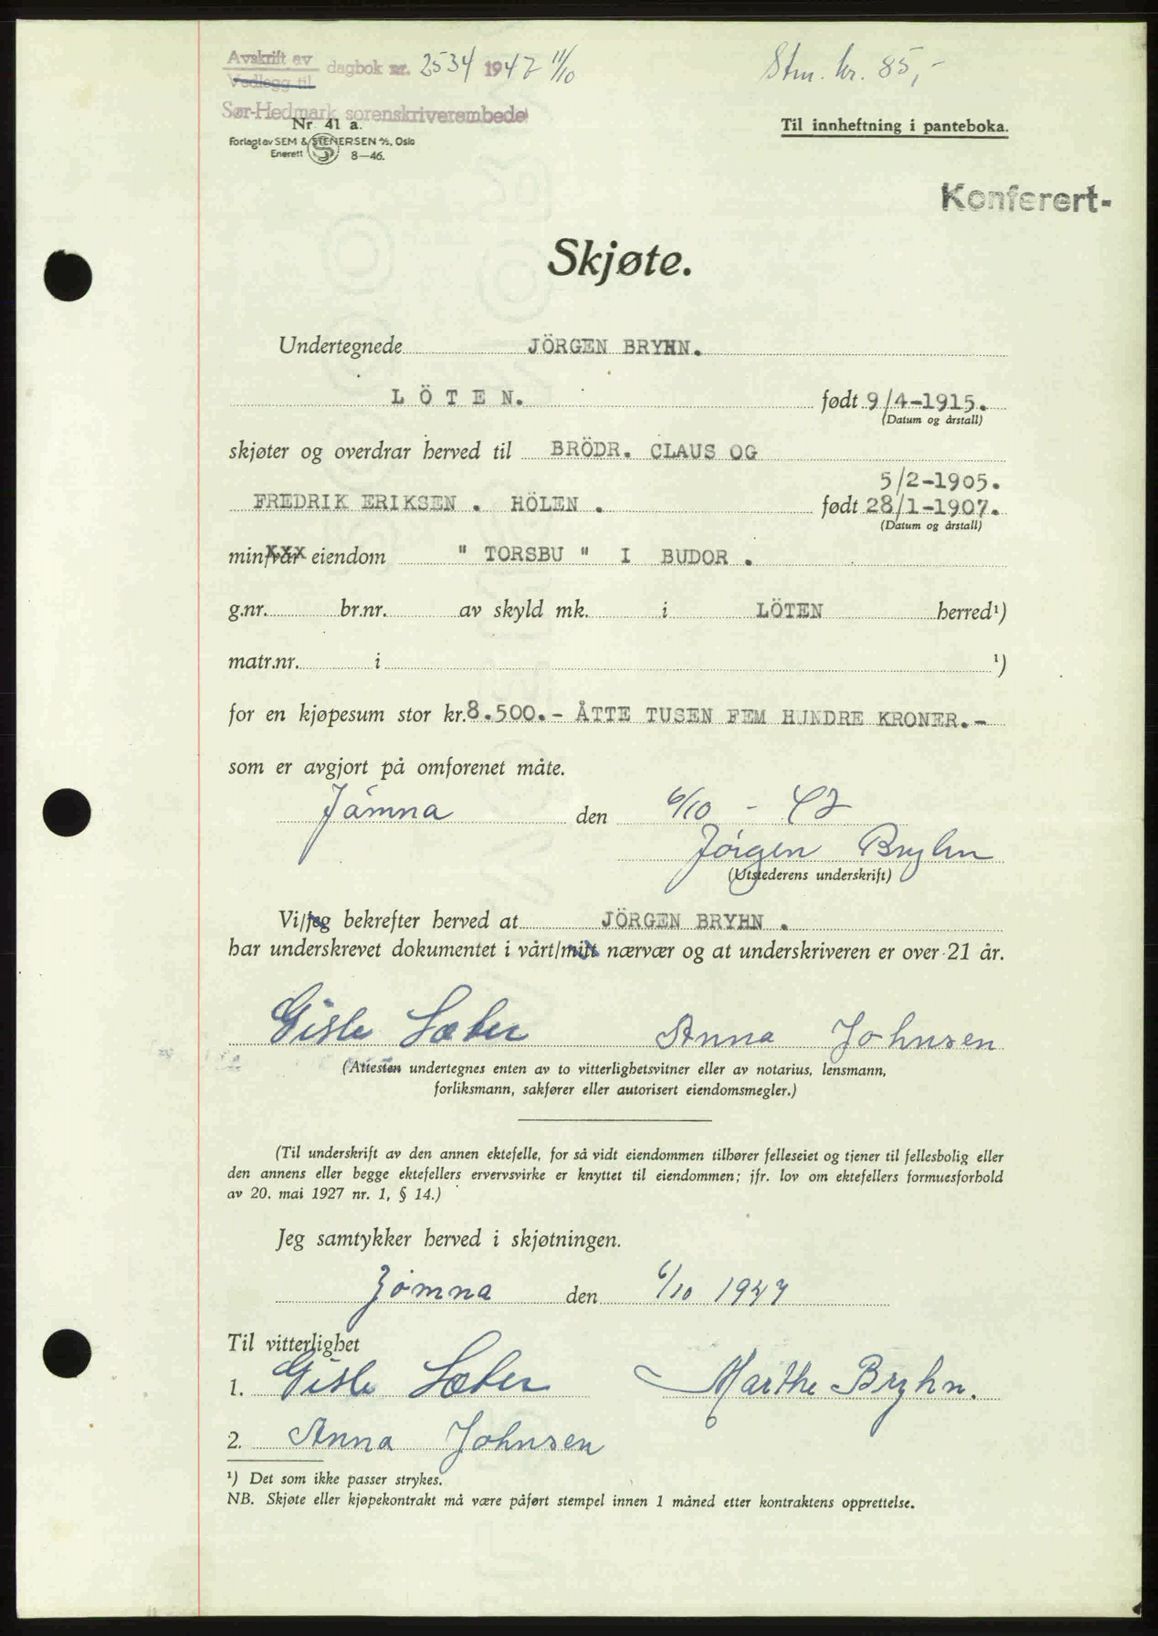 Avskrift av
Vedlegg til
dagbok nr. 2534 1947 11/10
Stm. kr. 85,-
Sør-Hedmark sorenskriverembede
Nr. 41 a.
Forlagt av SEM & STENERSEN A/S, Oslo
Enerett 8—46.
Til innheftning i panteboka.
Konferert-
Skjøte.
Undertegnede JÖRGEN BRYHN.
L Ö T E N. født 9/4-1915.
(Datum og årstall)
skjøter og overdrar herved til BRÖDR. CLAUS OG
5/2-1905.
FREDRIK ERIKSEN . HÖLEN . født 28/1-1907.
(Datum og årstall)
min/vår eiendom " TORSBU " I BUDOR .
g.nr. br.nr. av skyld mk. i LÖTEN herred¹)
matr.nr. i ¹)
for en kjøpesum stor kr. 8.500.- ÅTTE TUSEN FEM HUNDRE KRONER.-
som er avgjort på omforenet måte.
Jømna den 6/10 - 47
Jörgen Bryhn
(Utstederens underskrift)
Vi/jeg bekrefter herved at JÖRGEN BRYHN .
har underskrevet dokumentet i vårt/mitt nærvær og at underskriveren er over 21 år.
Gisle Sæter Anna Johnsen
(Attesten undertegnes enten av to vitterlighetsvitner eller av notarius, lensmann,
forliksmann, sakfører eller autorisert eiendomsmegler.)
(Til underskrift av den annen ektefelle, for så vidt eiendommen tilhører felleseiet og tjener til fellesbolig eller
den annens eller begge ektefellers ervervsvirke er knyttet til eiendommen; jfr. lov om ektefellers formuesforhold
av 20. mai 1927 nr. 1, § 14.)
Jeg samtykker herved i skjøtningen.
Jømna den 6/10 1947
Til vitterlighet
1. Gisle Sæter Marthe Bryhn.
2. Anna Johnsen
¹) Det som ikke passer strykes.
NB. Skjøte eller kjøpekontrakt må være påført stempel innen 1 måned etter kontraktens opprettelse.